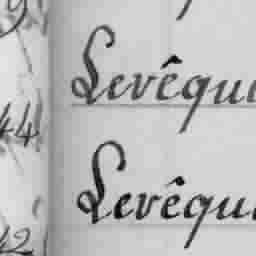 Levêque
44 Levêqu
42